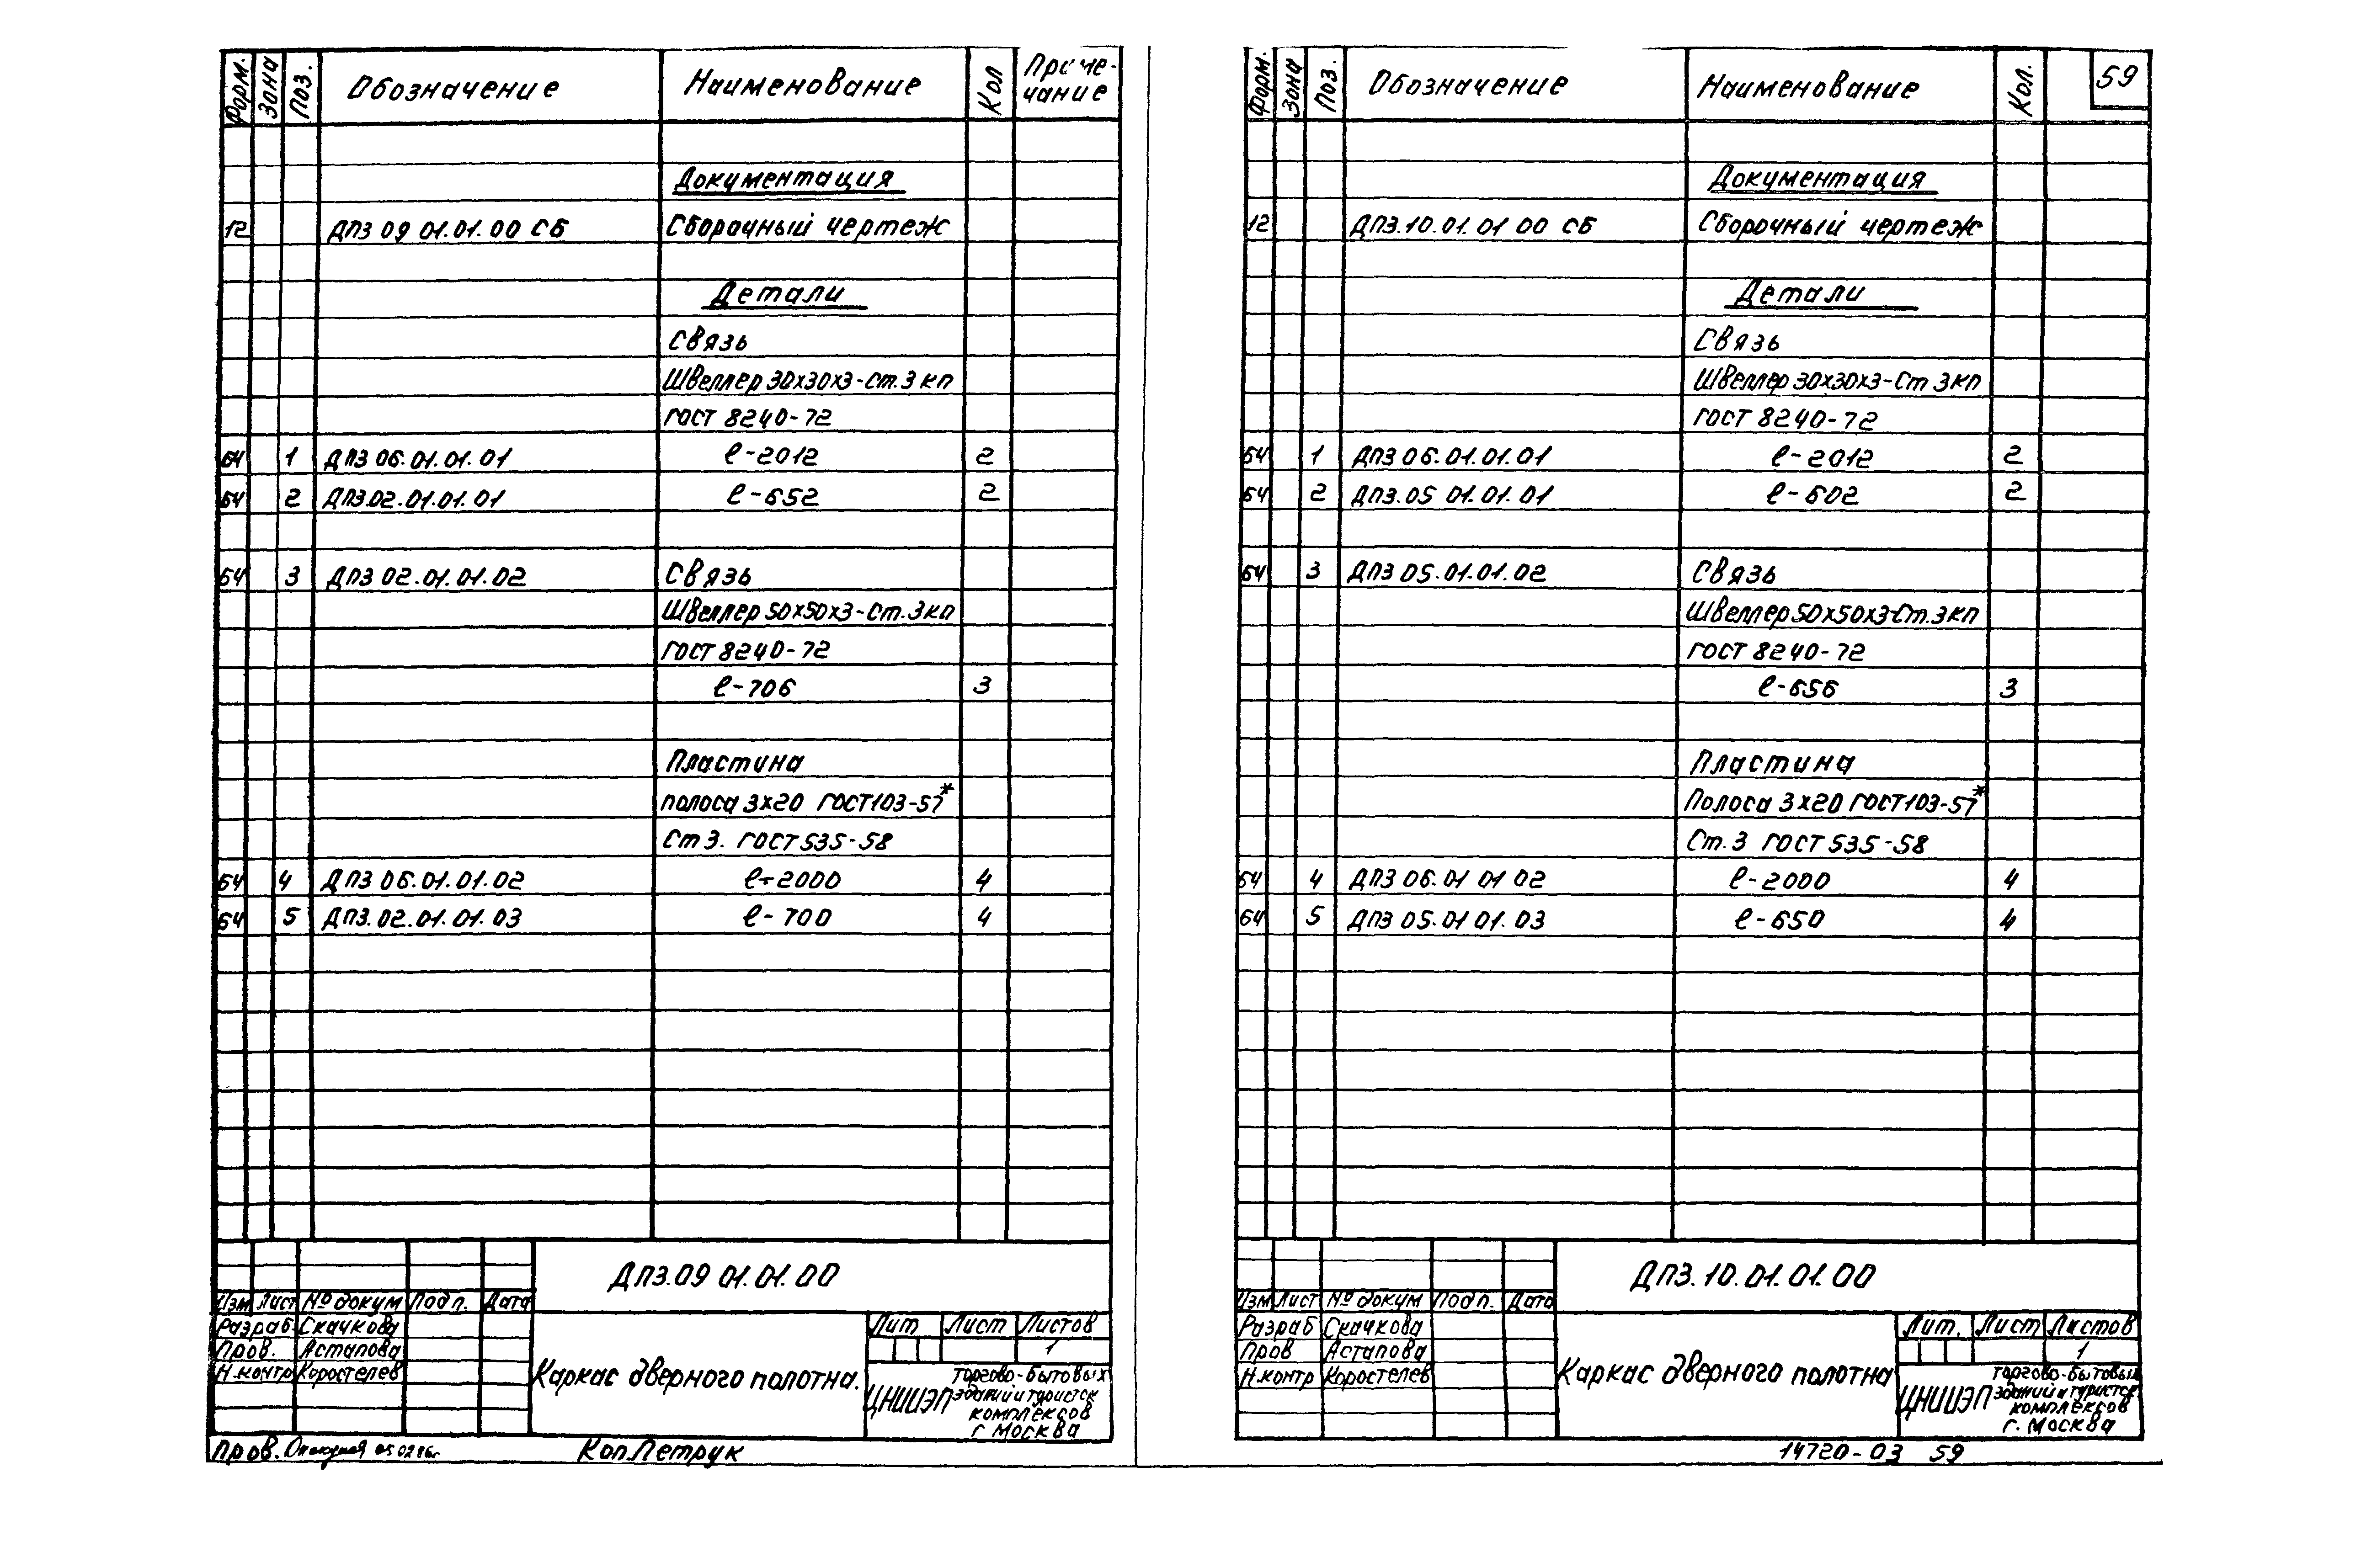 Форм. Зона Поз. Обозначение Наименование Кол Приме-
чание
Документация
12 ДПЗ 09 01.01.00 СБ Сборочный чертеж
Детали
Связь
Швеллер 30х30х3-Ст.3кп
ГОСТ 8240-72
БЧ 1 ДПЗ 06.01.01.01 ℓ-2012 2
БЧ 2 ДПЗ.02.01.01.01 ℓ-652 2
БЧ 3 ДПЗ 02.01.01.02 Связь
Швеллер 50х50х3-Ст.3кп
ГОСТ 8240-72
ℓ-706 3
Пластина
полоса 3х20 ГОСТ103-57*
Ст 3. ГОСТ 535-58
БЧ 4 ДПЗ 06.01.01.02 ℓ-2000 4
БЧ 5 ДПЗ.02.01.01.03 ℓ-700 4
ДПЗ.09 01.01.00
Изм Лист № докум Подп. Дата
Разраб. Скачкова
Пров. Астапова
Н.контр Коростелев
Каркас дверного полотна.
Лит Лист Листов
1
ЦНИИЭП торгово-бытовых
зданий и туристск
комплексов
г Москва
Пров.
Коп.Петрук
Форм. Зона Поз. Обозначение Наименование Кол. 59
Документация
12 ДПЗ.10.01.01 00 СБ Сборочный чертеж
Детали
Связь
Швеллер 30х30х3-Ст 3кп
ГОСТ 8240-72
БЧ 1 ДПЗ 06.01.01.01 ℓ-2012 2
БЧ 2 ДПЗ.05 01.01.01 ℓ-602 2
БЧ 3 ДПЗ 05.01.01.02 Связь
Швеллер 50х50х3-Ст.3кп
ГОСТ 8240-72
ℓ-656 3
Пластина
Полоса 3х20 ГОСТ103-57*
Ст.3 ГОСТ 535-58
БЧ 4 ДПЗ 06.01 01 02 ℓ-2000 4
БЧ 5 ДПЗ 05.01 01.03 ℓ-650 4
ДПЗ.10.01.01.00
Изм Лист № докум Подп. Дата
Разраб Скачкова
Пров Астапова
Н.контр Коростелев
Каркас дверного полотна
Лит. Лист Листов
1
ЦНИИЭП торгово-бытовых
зданий и туристск
комплексов
г. Москва
14720-03 59